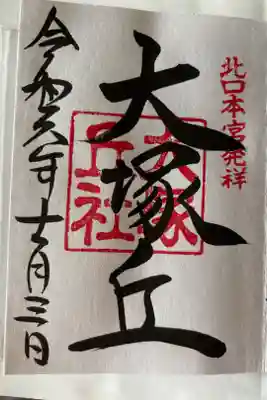 北口本宮発祥
大塚丘
大塚丘社
令和六年十一月三日